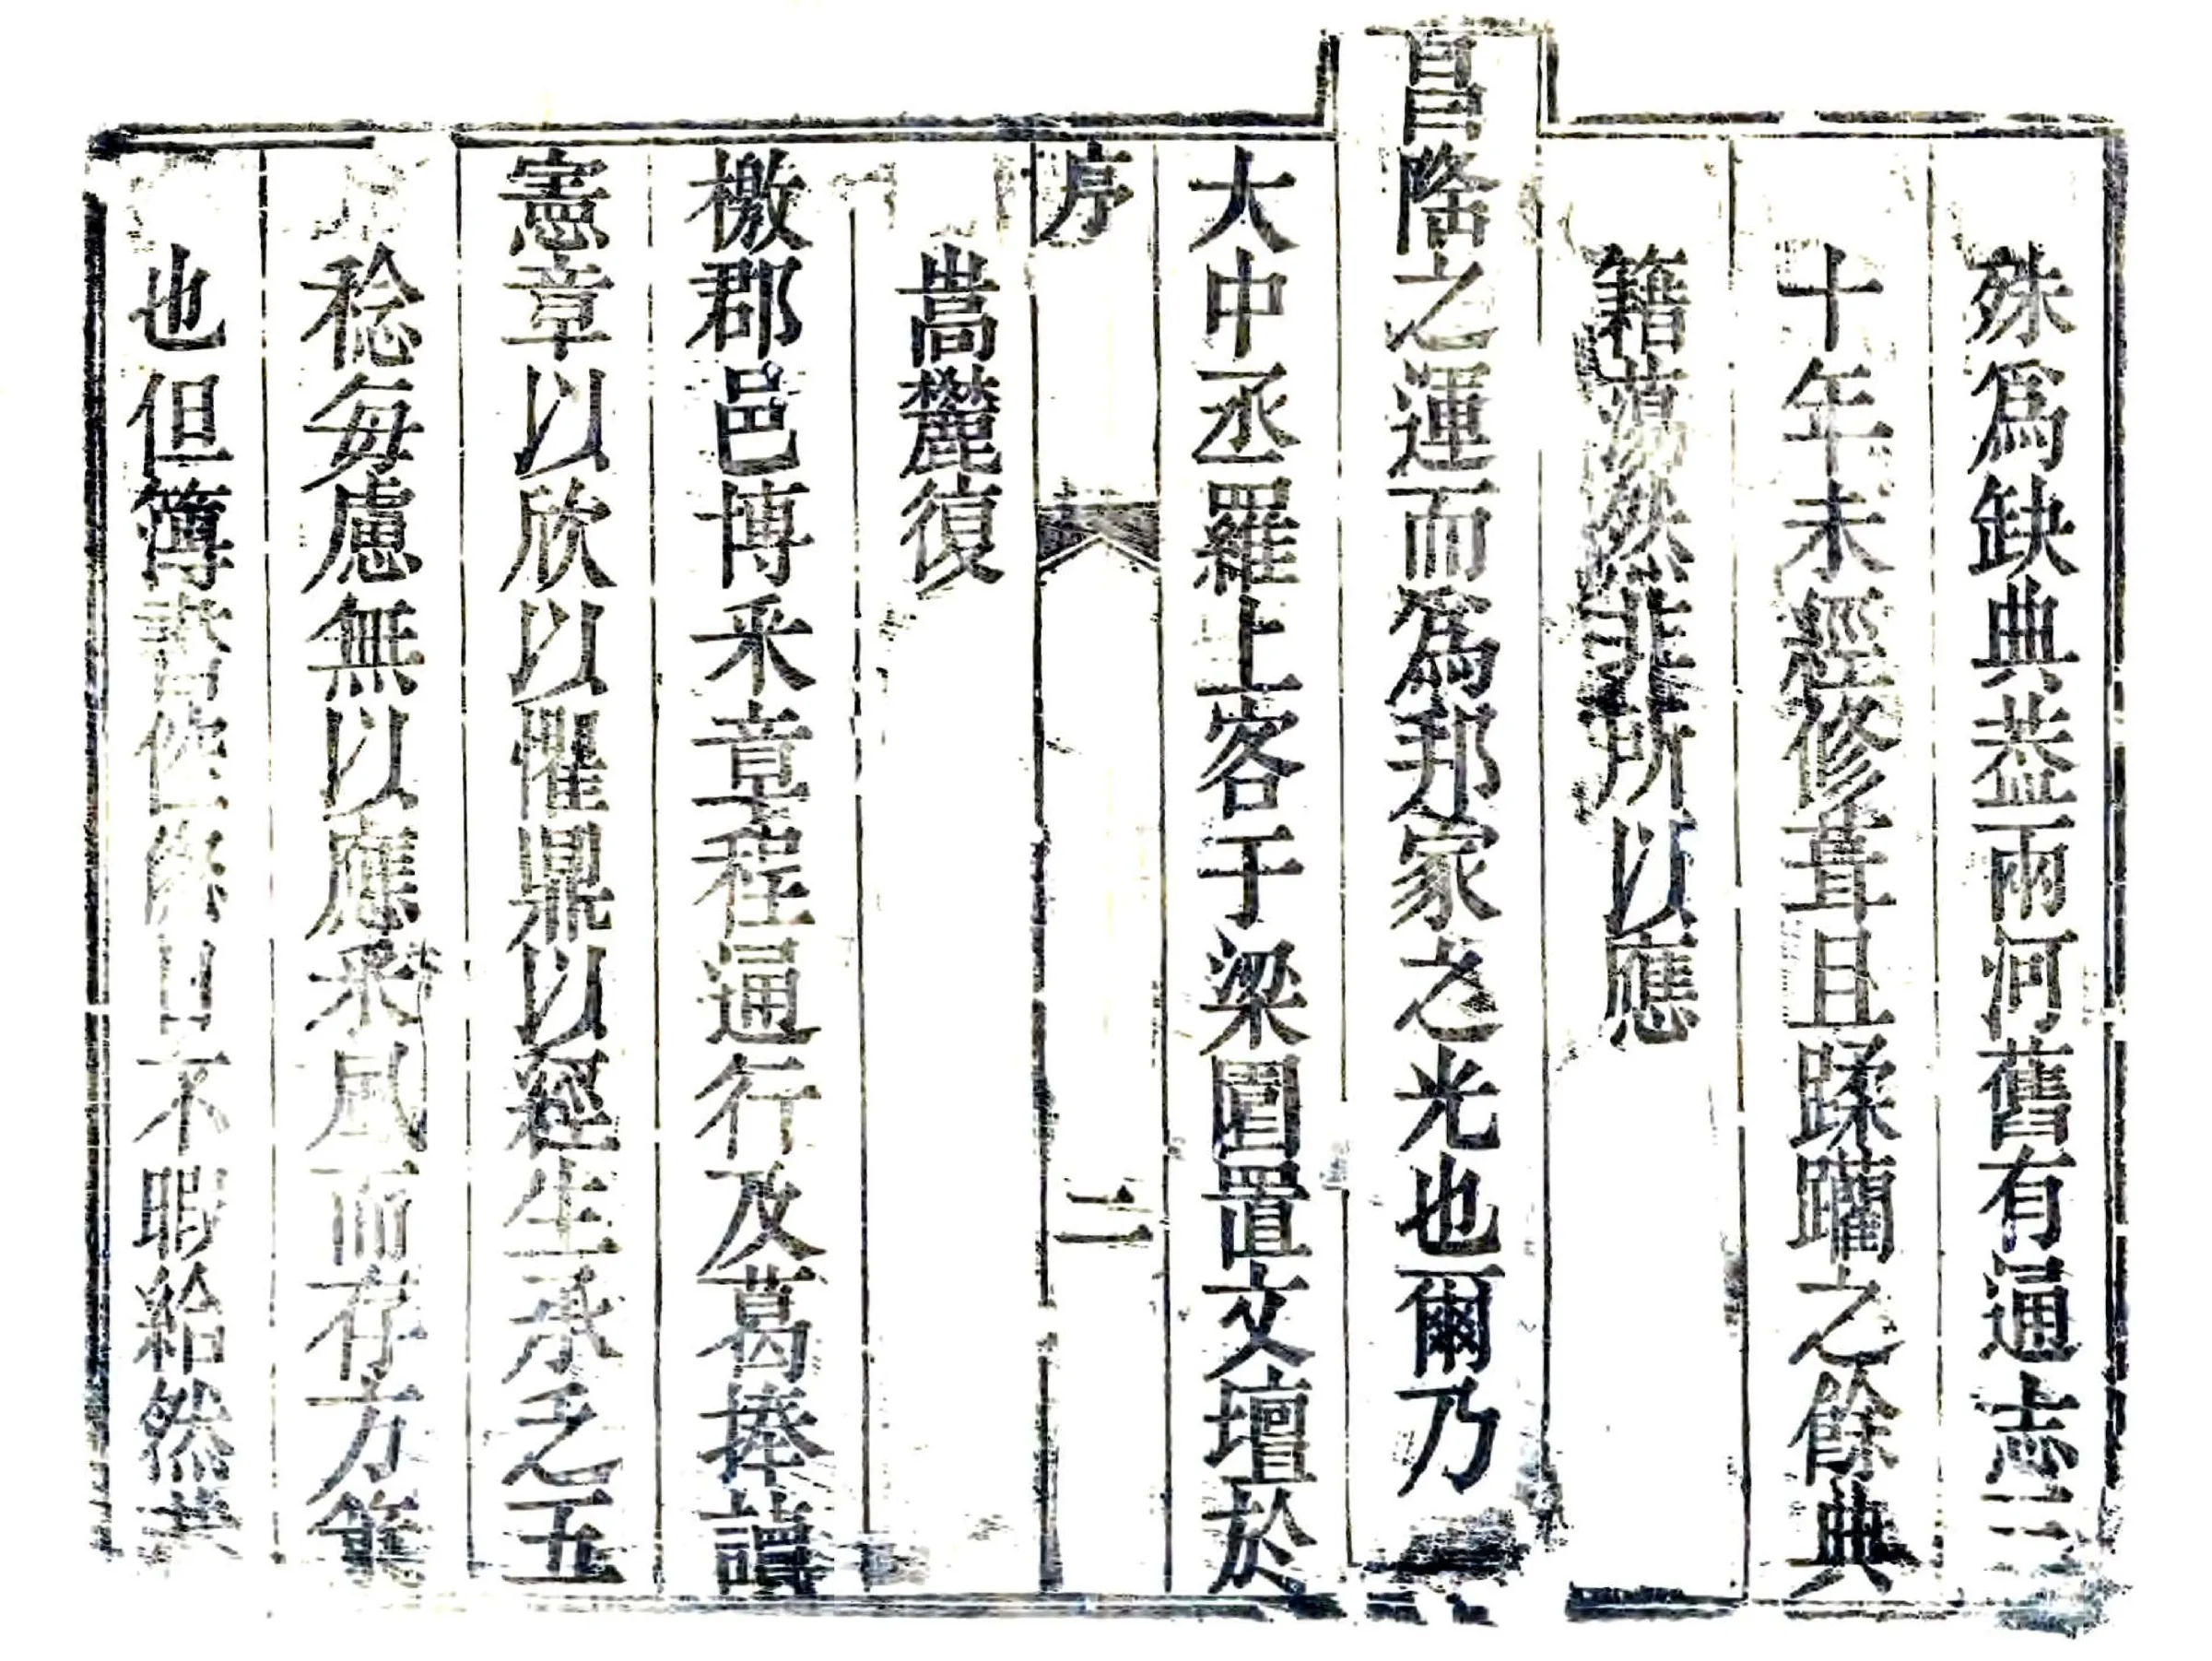 殊爲缺典葢兩河舊有通志三
十年未經修葺且蹂躪之餘典
籍蕩然非所以應
昌隆之運而爲邦家之光也爾乃
大中丞羅上客于梁園置文壇於
序 二
嵩麓復
檄郡邑博采章程通行及葛捧讀
憲章以欣以懼鼎以經生承乏五
稔每慮無以應采風而存方策
也但簿書 日不暇給然